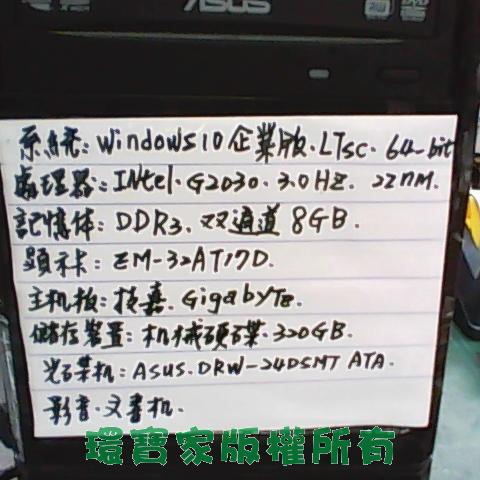 ASUS
系統：Windows10企業版．LTSC．64-bit
處理器：INtel．G2030．3.0HZ．22nM．
記憶体：DDR3．双通道 8GB．
顕卡：ZM-32AT17D．
主机板：技嘉．GigabyTe．
儲存裝置：机械硬碟．320GB．
光碟机：ASUS．DRW-24D5MT ATA．
影音．文書机．
環寶家版權所有